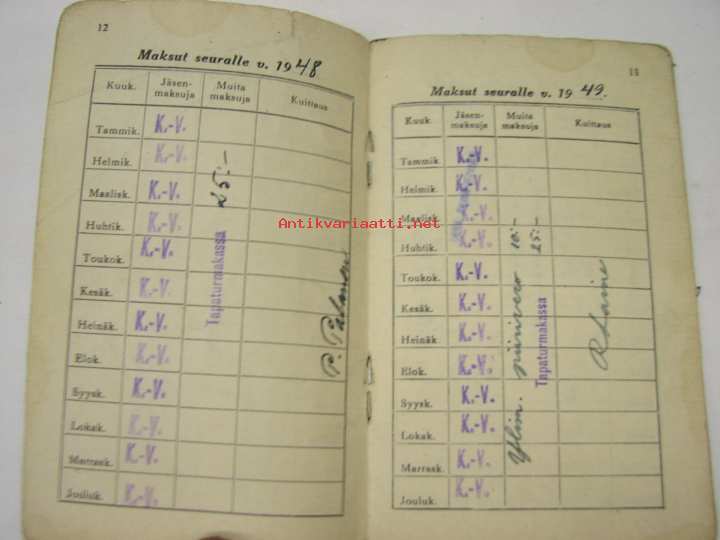 12
Maksut seuralle v. 1948
Kuuk. Jäsen-maksuja Muita maksuja Kuittaus
Tammik. K.-V.
Helmik. K.-V.
Maalisk. K.-V.
Huhtik. K.-V.
Toukok. K.-V.
Kesäk. K.-V.
Heinäk. K.-V.
Elok. K.-V.
Syysk. K.-V.
Lokak. K.-V.
Marrask. K.-V.
Jouluk. K.-V.
Tapaturmakassa 25:-
Antikvariaatti.net
Maksut seuralle v. 1949.
Kuuk. Jäsen-maksuja Muita maksuja Kuittaus
Tammik. K.-V.
Helmik. K.-V.
Maalisk. K.-V.
Huhtik. K.-V.
Toukok. K.-V.
Kesäk. K.-V.
Heinäk. K.-V.
Elok. K.-V.
Syysk. K.-V.
Lokak. K.-V.
Marrask. K.-V.
Jouluk. K.-V.
Ylim. 10:-
Tapaturmakassa 25:-